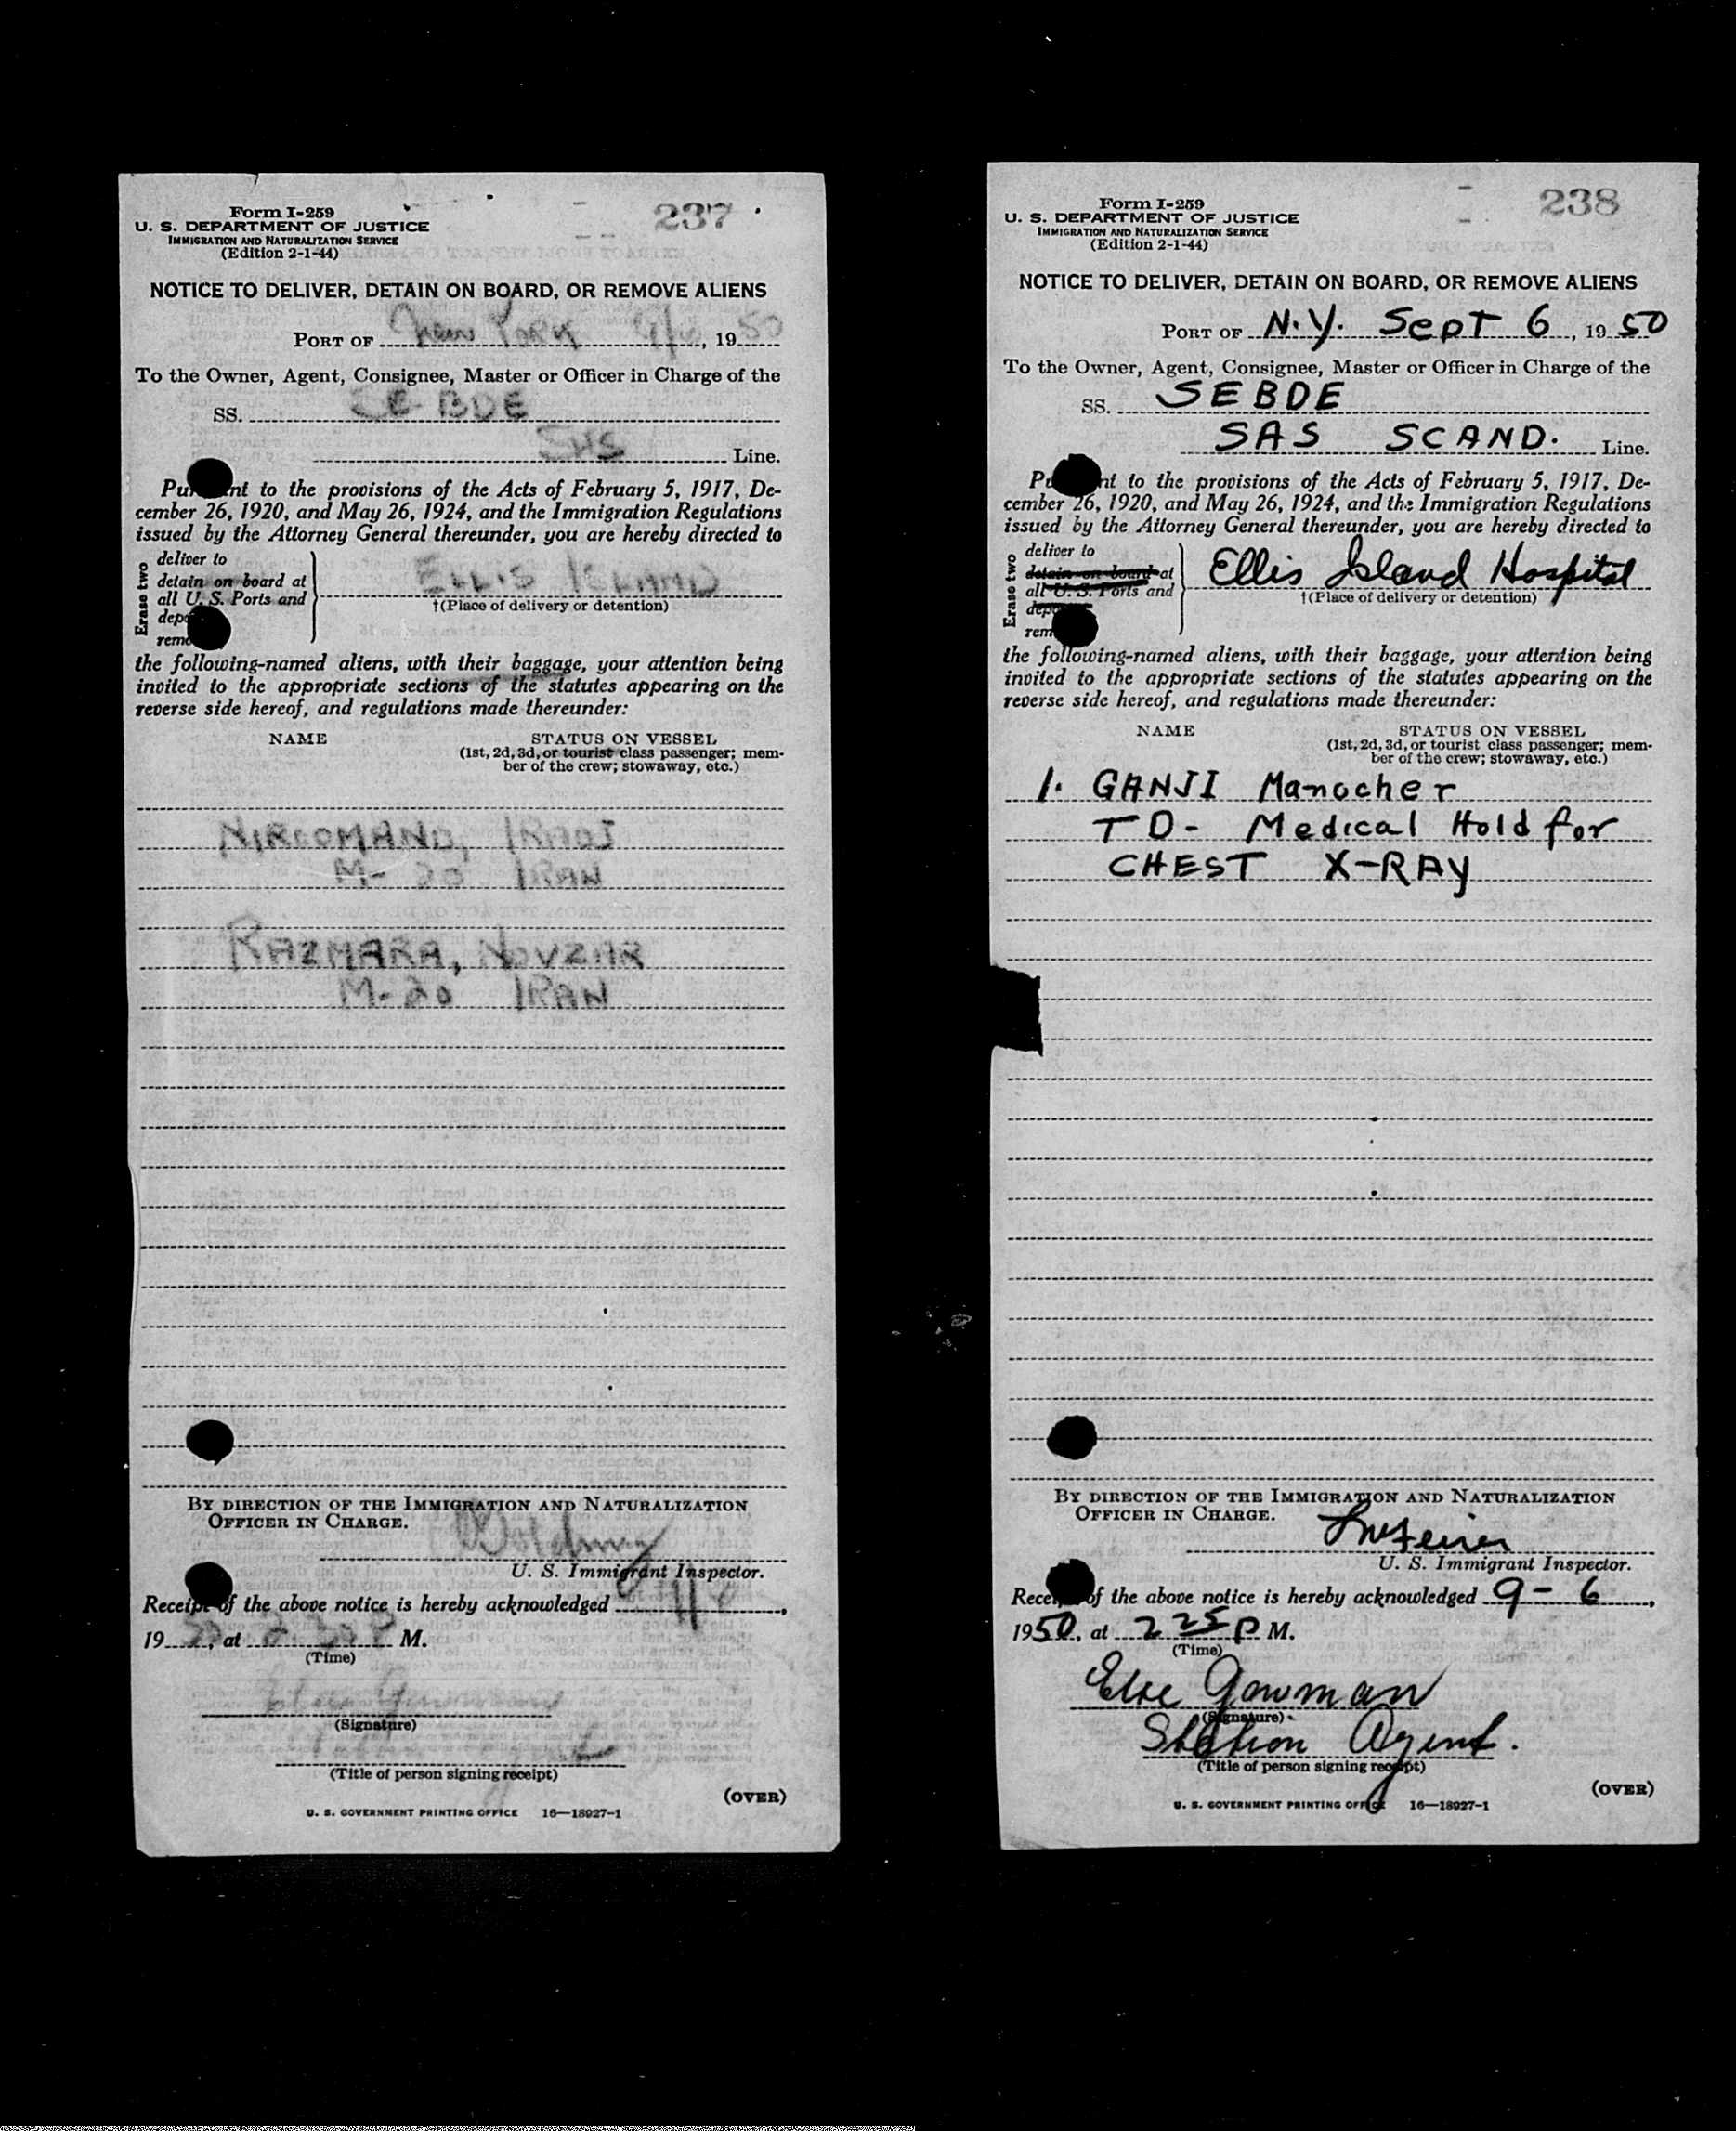 Form I-259
237
U. S. DEPARTMENT OF JUSTICE
IMMIGRATION AND NATURALIZATION SERVICE
(Edition 2-1-44)
NOTICE TO DELIVER, DETAIN ON BOARD, OR REMOVE ALIENS
PORT OF New York , 19 50
To the Owner, Agent, Consignee, Master or Officer in Charge of the
SS. SE-BDE
SAS Line.
to the provisions of the Acts of February 5, 1917, De-
cember 26, 1920, and May 26, 1924, and the Immigration Regulations
issued by the Attorney General thereunder, you are hereby directed to
Erase two
deliver to
detain on board at
all U. S. Ports and
ELLIS ISLAND
†(Place of delivery or detention)
the following-named aliens, with their baggage, your attention being
invited to the appropriate sections of the statutes appearing on the
reverse side hereof, and regulations made thereunder:
NAME STATUS ON VESSEL
(1st, 2d, 3d, or tourist class passenger; mem-
ber of the crew; stowaway, etc.)
IRADJ
M- 20 IRAN
RAZMARA, NOVZAR
M-20 IRAN
BY DIRECTION OF THE IMMIGRATION AND NATURALIZATION
OFFICER IN CHARGE.
U. S. Immigrant Inspector.
Receipt of the above notice is hereby acknowledged ,
19 50, at M.
(Time)
Else Gowman
(Signature)
(Title of person signing receipt)
(OVER)
U. S. GOVERNMENT PRINTING OFFICE 16—18027-1
Form I-259
238
U. S. DEPARTMENT OF JUSTICE
IMMIGRATION AND NATURALIZATION SERVICE
(Edition 2-1-44)
NOTICE TO DELIVER, DETAIN ON BOARD, OR REMOVE ALIENS
PORT OF N.Y. Sept 6, 19 50
To the Owner, Agent, Consignee, Master or Officer in Charge of the
SS. SEBDE
SAS SCAND. Line.
to the provisions of the Acts of February 5, 1917, De-
cember 26, 1920, and May 26, 1924, and the Immigration Regulations
issued by the Attorney General thereunder, you are hereby directed to
Erase two
deliver to
detain on board at
all U. S. Ports and
Ellis Island Hospital
†(Place of delivery or detention)
the following-named aliens, with their baggage, your attention being
invited to the appropriate sections of the statutes appearing on the
reverse side hereof, and regulations made thereunder:
NAME STATUS ON VESSEL
(1st, 2d, 3d, or tourist class passenger; mem-
ber of the crew; stowaway, etc.)
1. GANJI Manocher
TD- Medical Hold for
CHEST X-RAY
BY DIRECTION OF THE IMMIGRATION AND NATURALIZATION
OFFICER IN CHARGE.
U. S. Immigrant Inspector.
of the above notice is hereby acknowledged 9-6,
1950, at 2 25 P M.
(Time)
Else Gowman
(Signature)
Station Agent.
(Title of person signing receipt)
(OVER)
U. S. GOVERNMENT PRINTING OFFICE 16—18027-1